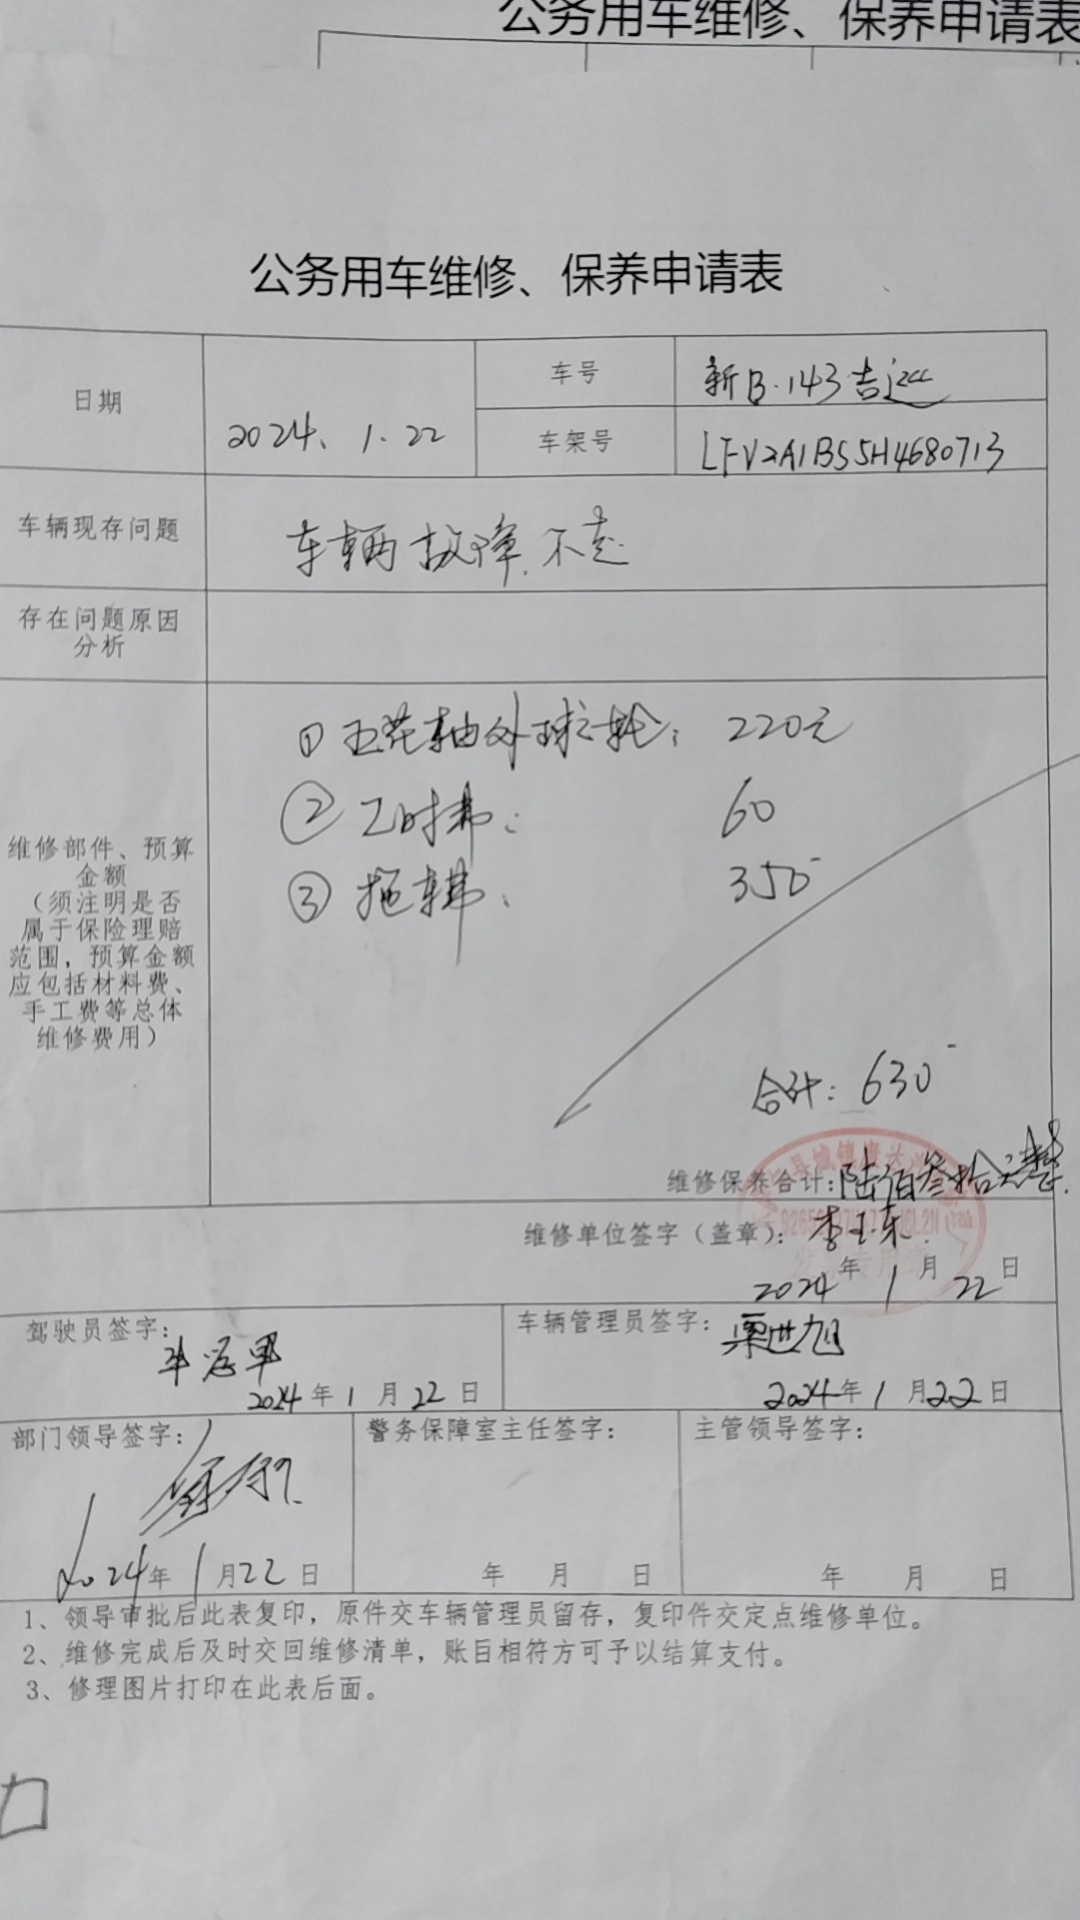 公务用车维修、保养申请表
公务用车维修、保养申请表
日期
2024、1.22
车号
新B·143
车架号
LFV2A1BS5H4680713
车辆现存问题
车辆故障.不走
存在问题原因
分析
维修部件、预算
金额
（须注明是否
属于保险理赔
范围，预算金额
应包括材料费、
手工费等总体
维修费用）
① 轴外球：220元
② 工时费： 60
③ 拖车费、 350
合计：630
维修保养合计：陆佰叁拾元整
维修单位签字（盖章）：李玉东
2024年1月22日
驾驶员签字：
2024年1月22日
车辆管理员签字：栗世旭
2024年1月22日
部门领导签字：
2024年1月22日
警务保障室主任签字：
年 月 日
主管领导签字：
年 月 日
1、领导审批后此表复印，原件交车辆管理员留存，复印件交定点维修单位。
2、维修完成后及时交回维修清单，账目相符方可予以结算支付。
3、修理图片打印在此表后面。